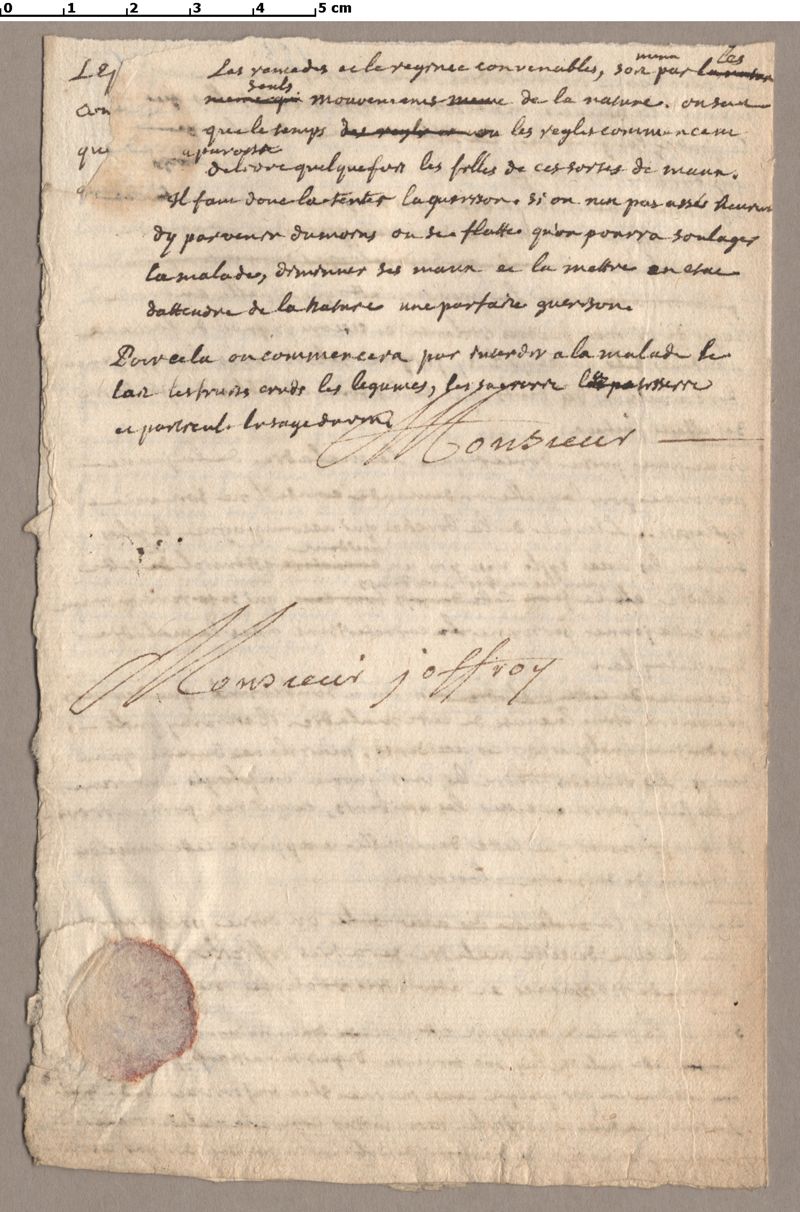 0 1 2 3 4 5 cm
mesme les
Les remedes et le regime convenables, soit par la nature
seuls
mouvemens mesme de la nature. on scait
que le temps des regles ou les regles commencent
a paroistre
delivre quelquefois les filles de ces sortes de maux.
Il faut donc tenter la guerison. si on nest pas assés heureux
dy parvenir du moins on se flatte qu'on pourra soulager
la malade, diminuer ses maux et la mettre en estat
dattendre de la Nature une parfaite guerison.
Pour cela on commencera par interdir a la malade le
lait les fruits cruds les legumes, les sucrerie la patisserie
et par seul. lusage du vin
Monsieur
Monsieur joffroy